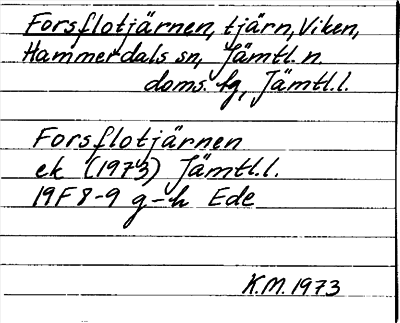 Forsflotjärnen, tjärn, Viken,
Hammerdals sn, Jämtl. n.
doms. fg, Jämtl.l.
Forsflotjärnen
ek (1973) Jämtl.l.
19F 8-9 g-h Ede
K.M. 1973